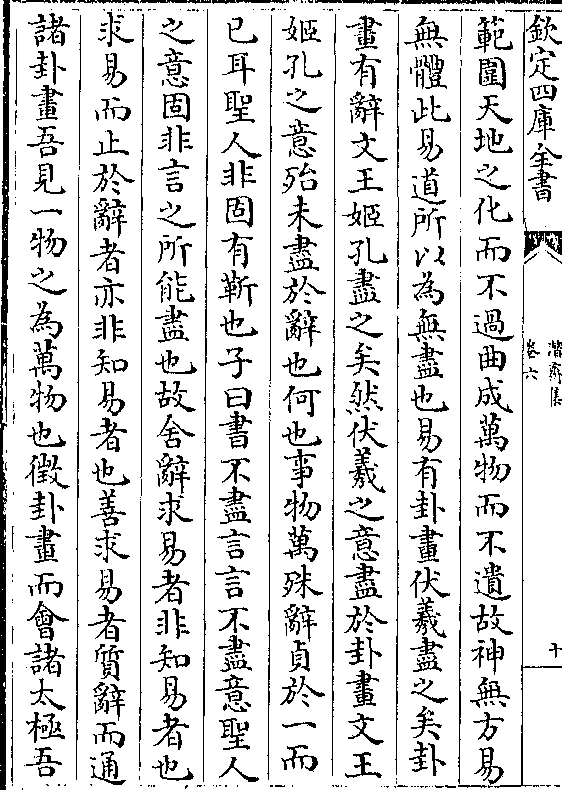 欽定四庫全書
潛齋集
卷六
十
範圍天地之化而不過曲成萬物而不遺故神無方易
無體此易道所以為無盡也易有卦畫伏羲盡之矣卦
畫有辭文王姬孔盡之矣然伏羲之意盡於卦畫文王
姬孔之意殆未盡於辭也何也事物萬殊辭貞於一而
已耳聖人非固有靳也子曰書不盡言言不盡意聖人
之意固非言之所能盡也故舍辭求易者非知易者也
求易而止於辭者亦非知易者也善求易者質辭而通
諸卦畫吾見一物之為萬物也徵卦畫而會諸太極吾